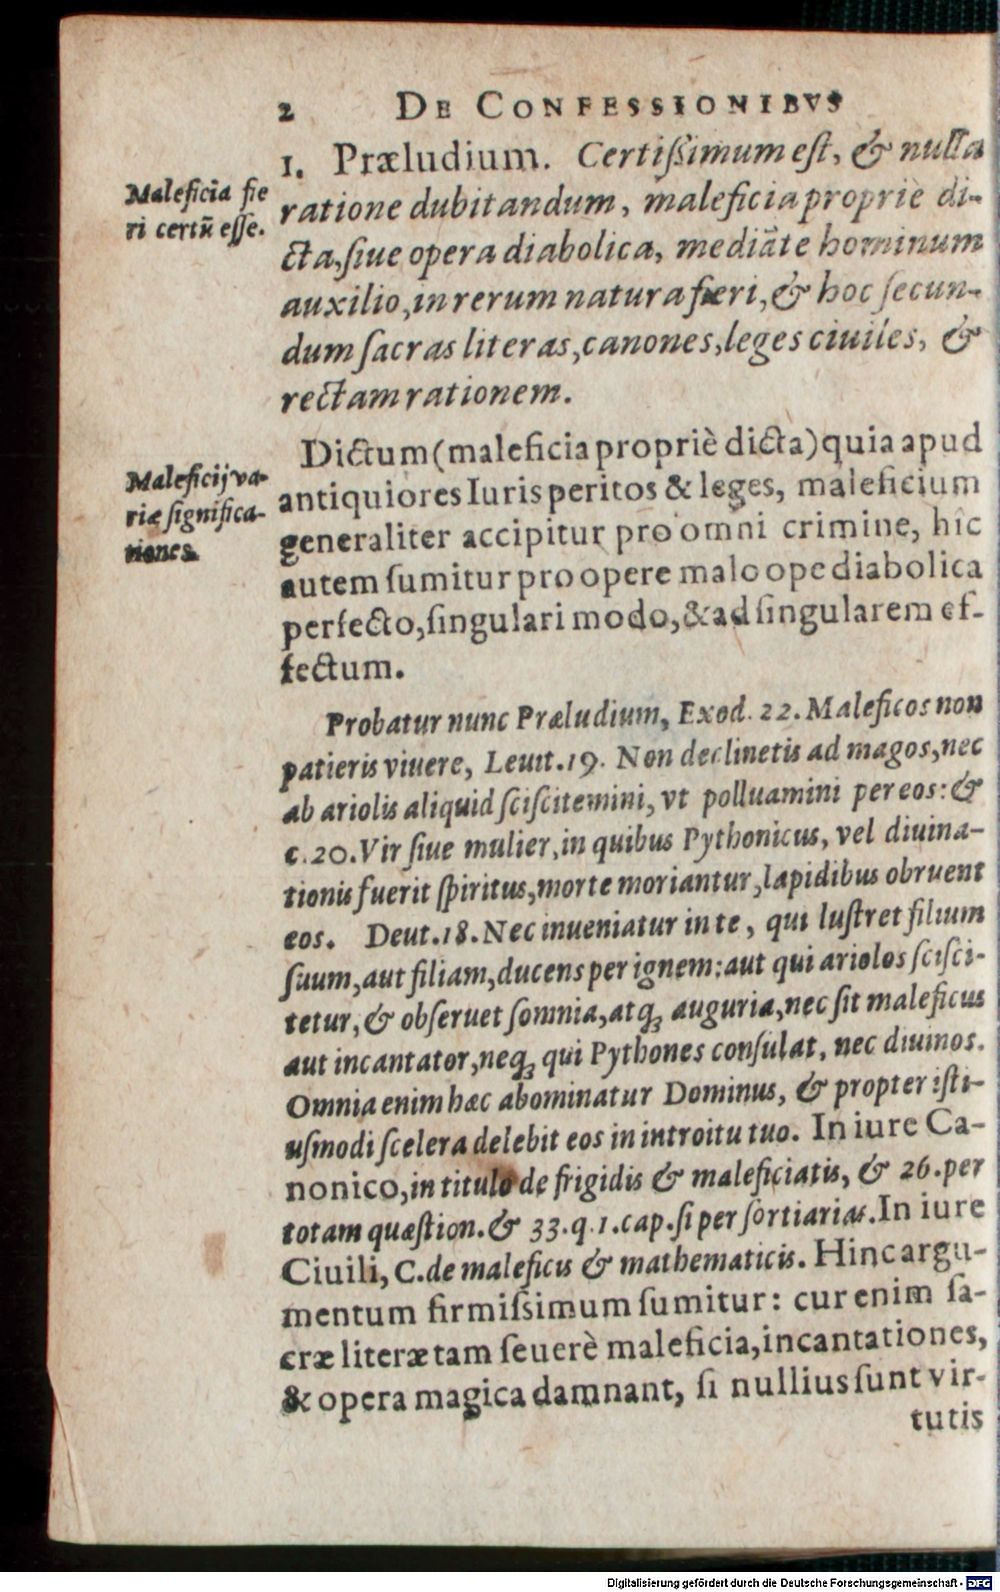 2 DE CONFESSIONIBVS
1. Præludium. Certißimum est, & nulla
Maleficia fie
ri certũ esse.
ratione dubitandum, maleficia propriè di-
cta, siue opera diabolica, mediãte hominum
auxilio, in rerum natura fieri, & hoc secun-
dum sacras literas, canones, leges ciuiles, &
rectam rationem.
Dictum (maleficia propriè dicta) quia apud
Maleficij va-
riæ significa-
tiones.
antiquiores Iurisperitos & leges, maleficium
generaliter accipitur pro omni crimine, hîc
autem sumitur pro opere malo ope diabolica
perfecto, singulari modo, & ad singularem ef-
fectum.
Probatur nunc Præludium, Exod. 22. Maleficos non
patieris viuere, Leuit. 19. Non declinetis ad magos, nec
ab ariolis aliquid sciscitemini, vt polluamini per eos: &
c. 20. Vir siue mulier, in quibus Pythonicus, vel diuina-
tionis fuerit spiritus, morte moriantur, lapidibus obruent
eos. Deut. 18. Nec inueniatur in te, qui lustret filium
suum, aut filiam, ducens per ignem: aut qui ariolos scisci-
tetur, & obseruet somnia, atq; auguria, nec sit maleficus
aut incantator, neq; qui Pythones consulat, nec diuinos.
Omnia enim hæc abominatur Dominus, & propter isti-
usmodi scelera delebit eos in introitu tuo. In iure Ca-
nonico, in titulo de frigidis & maleficiatis, & 26. per
totam quæstion. & 33. q. 1. cap. si per sortiarias. In iure
Ciuili, C. de maleficis & mathematicis. Hinc argu-
mentum firmissimum sumitur: cur enim sa-
cræ literæ tam seuerè maleficia, incantationes,
& opera magica damnant, si nullius sunt vir-
tutis
Digitalisierung gefördert durch die Deutsche Forschungsgemeinschaft - DFG